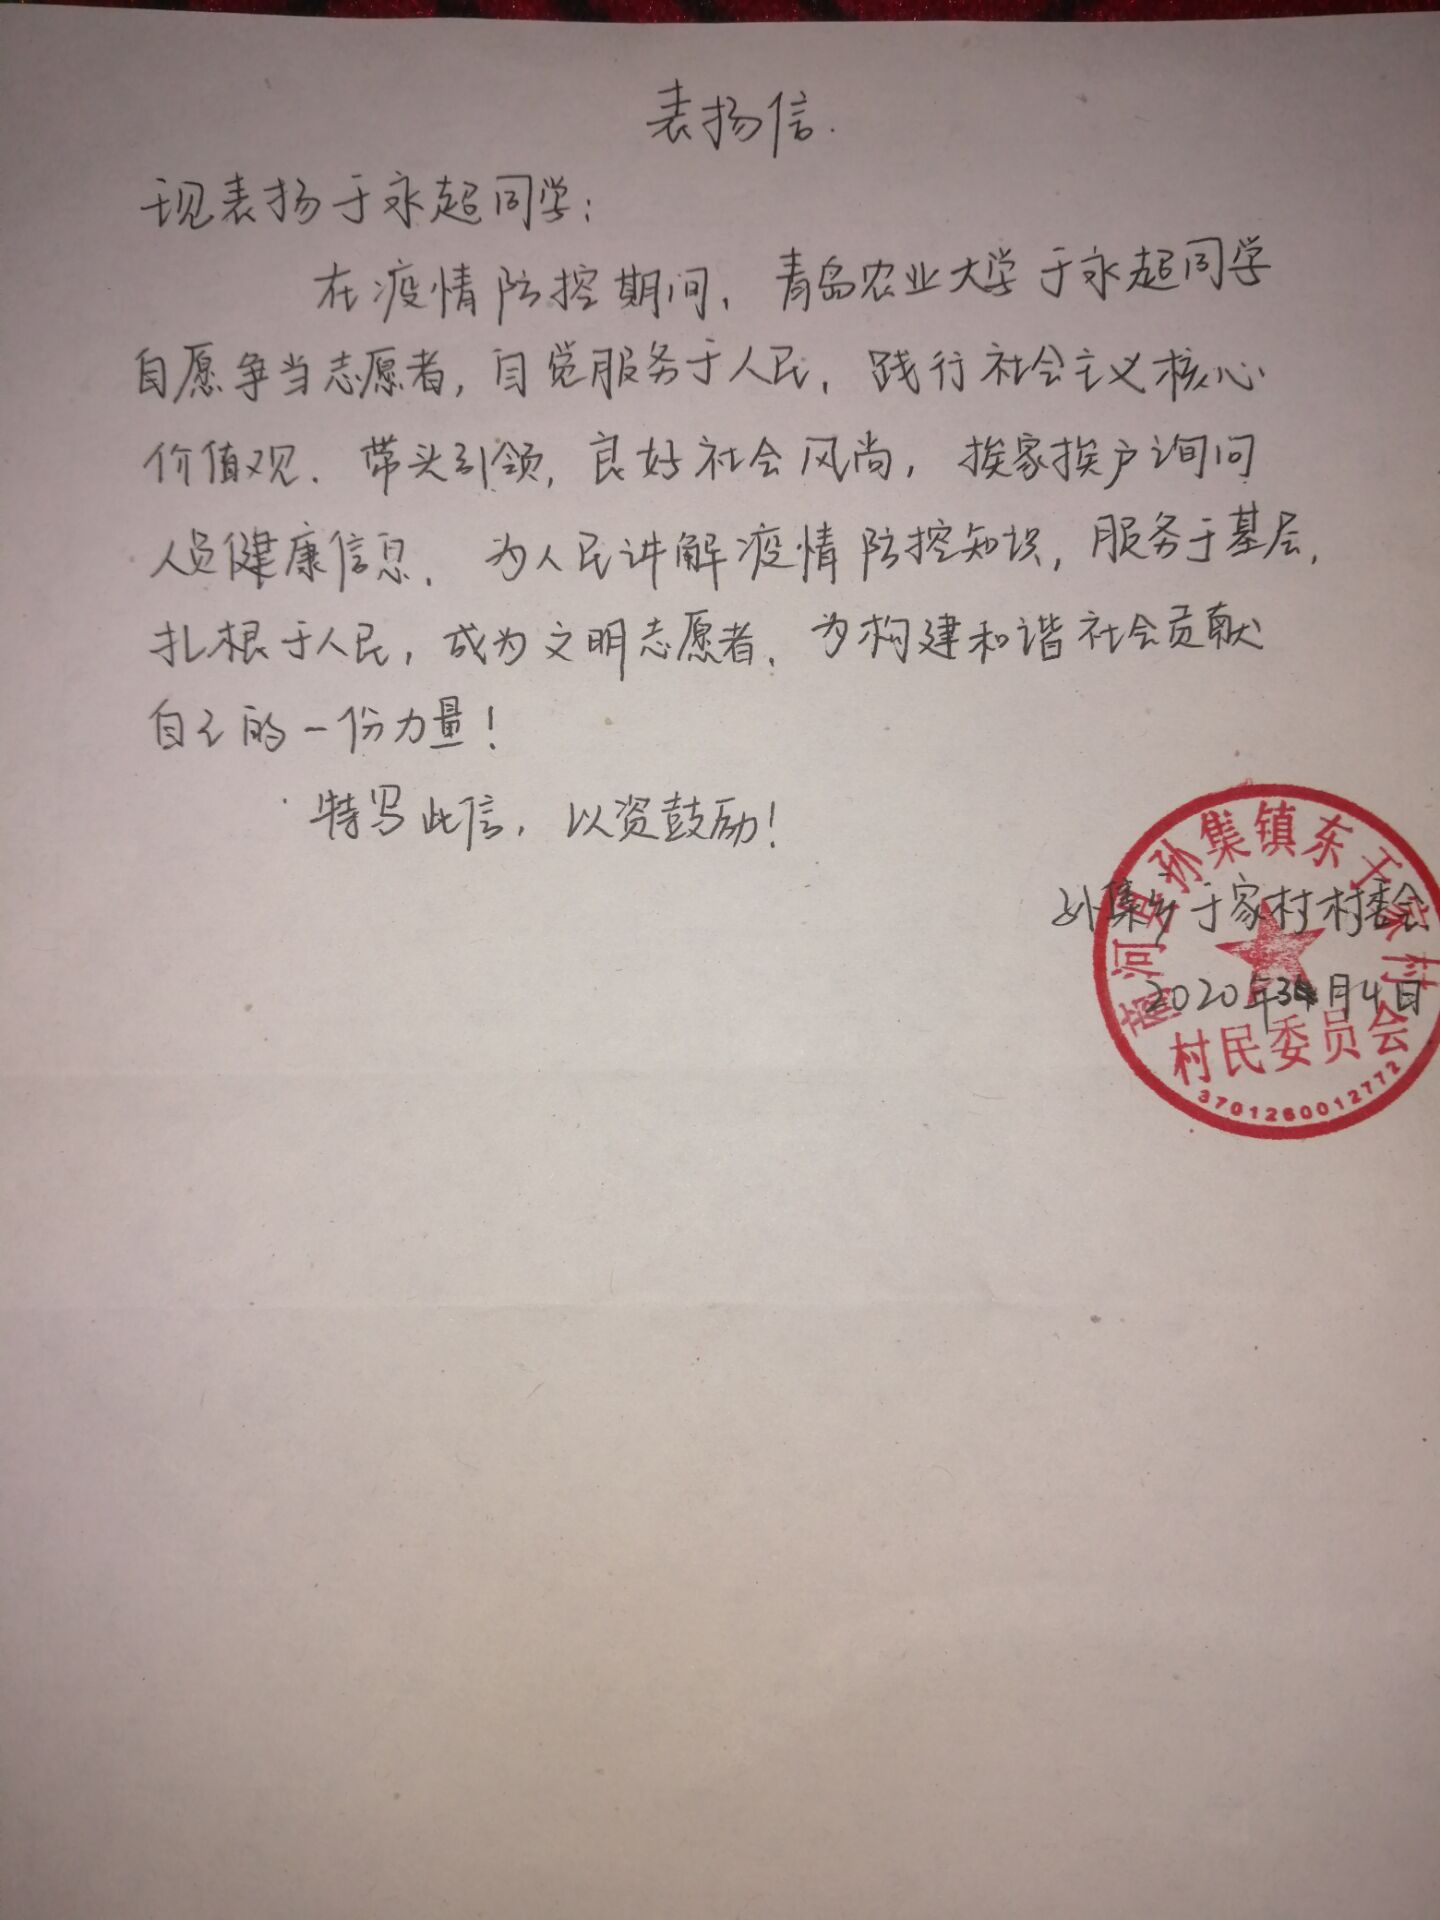 表扬信.
现表扬于永超同学:
在疫情防控期间,青岛农业大学于永超同学
自愿争当志愿者,自觉服务于人民,践行社会主义核心
价值观.带头引领,良好社会风尚,挨家挨户询问
人员健康信息、为人民讲解疫情防控知识,服务于基层,
扎根于人民,成为文明志愿者、为构建和谐社会贡献
自己的一份力量!
特写此信,以资鼓励!
孙集乡于家村村委会
2020年3月4日
商河县孙集镇东于家村
村民委员会
3701260012772